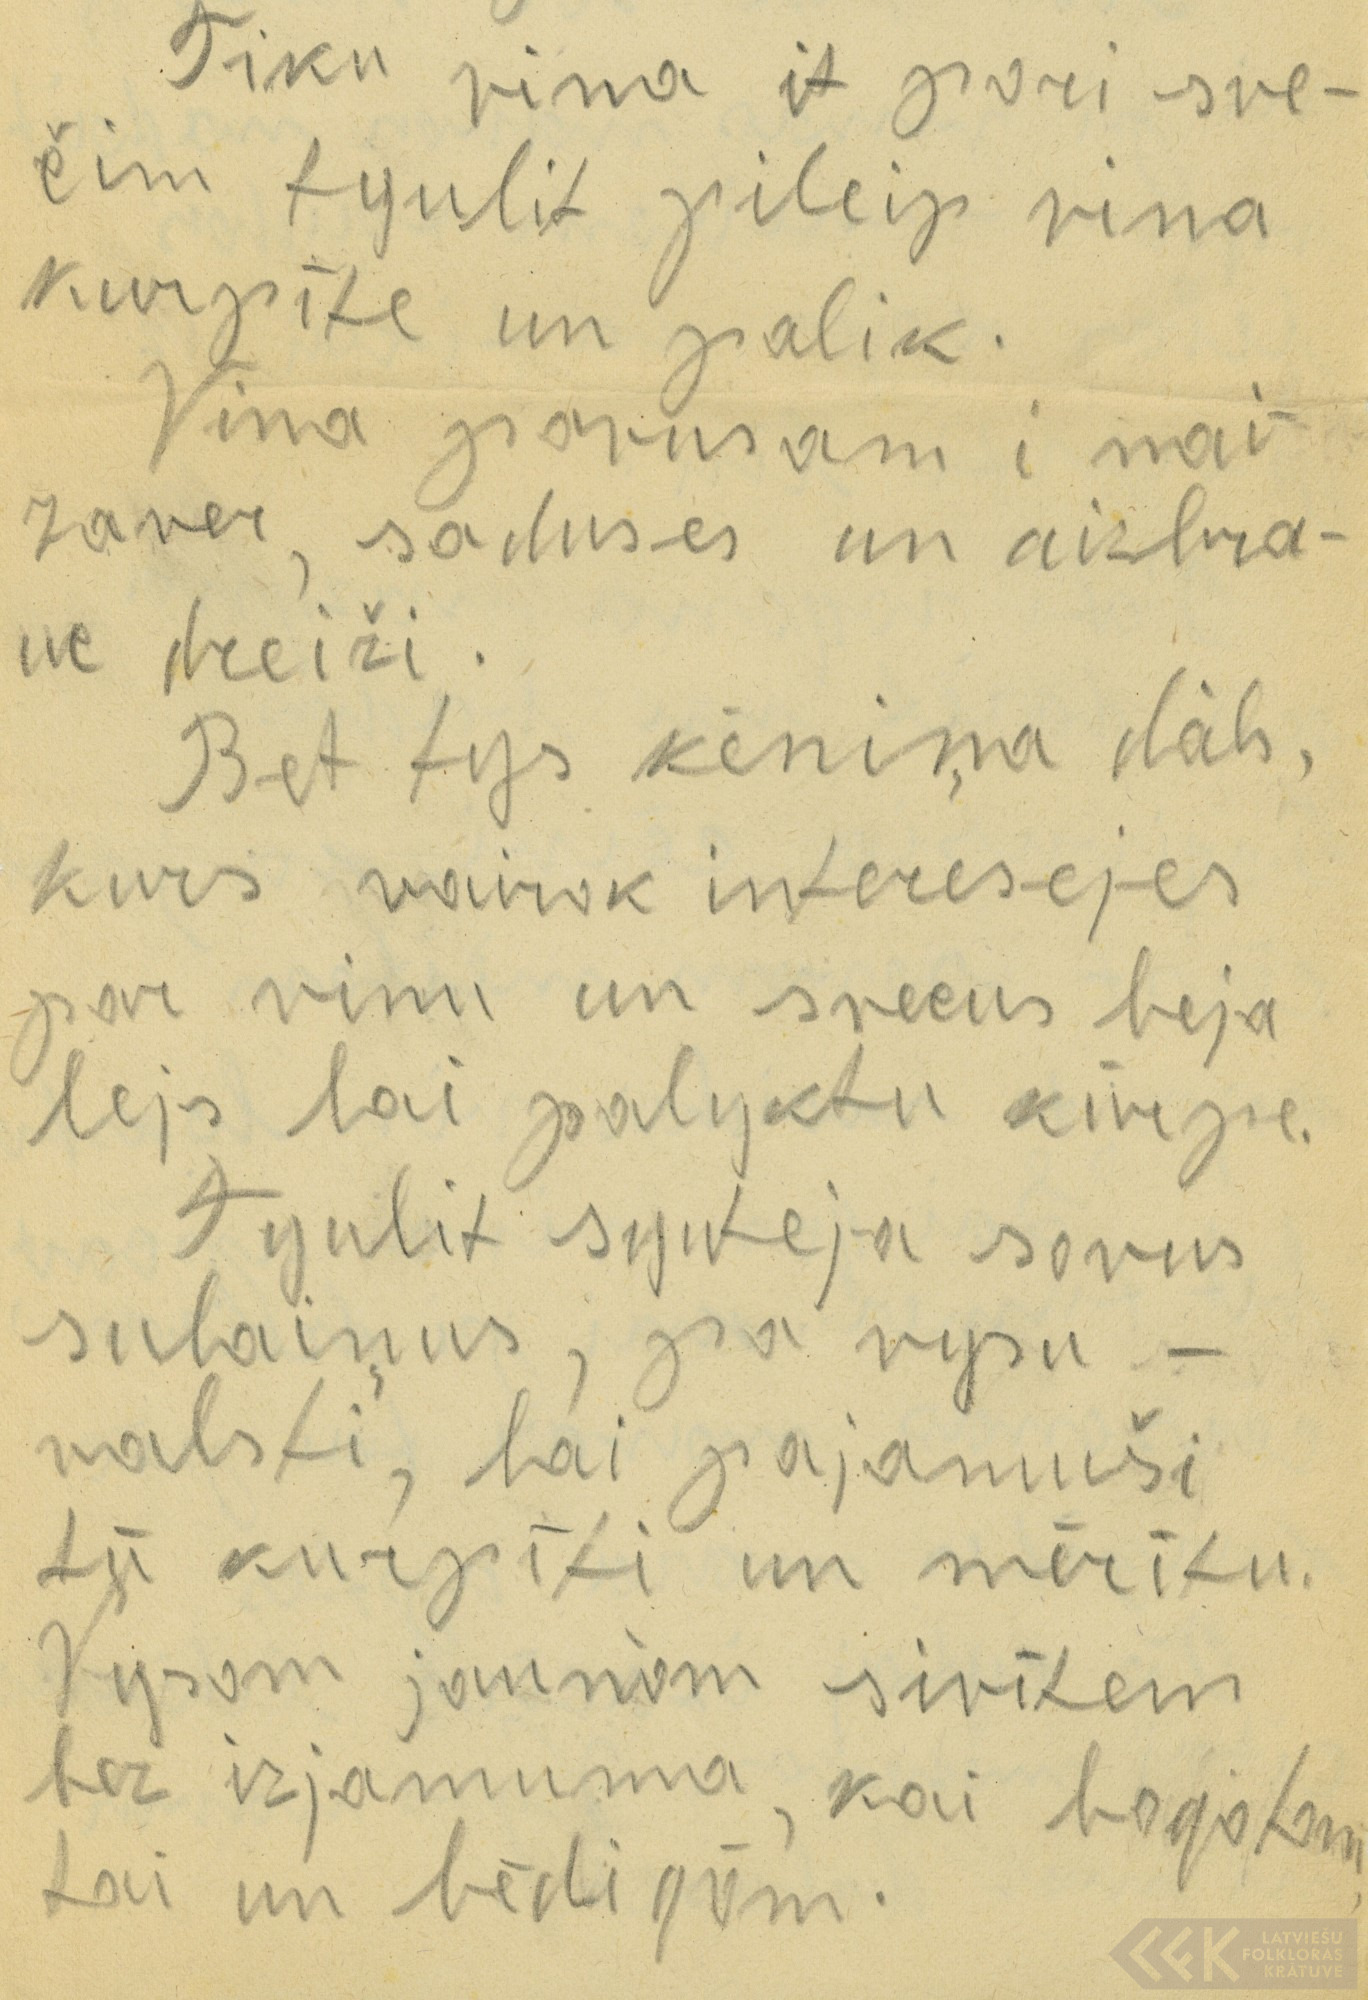 Tikū vina it pori sve-
čim tyulit pileip vina
kurpīte un palik.
Vina parusam i nai
zaver, saduses un aizbra-
uc dreiži.
Bet tys kēniņa dàls,
kurs vairok interesejes
par vinu un svecus beja
lejs lai palyktu kūrpe.
Tyulit syuteja sovus
sulaiņus, pa vysu -
valsti, lai pajamuši
tū kurpīti un mērītu.
Vysom jaunom sivītem
bez izjamuma, kai bogotom,
tai un bēdigōm.
LATVIEŠU
FOLKLORAS
KRĀTUVE